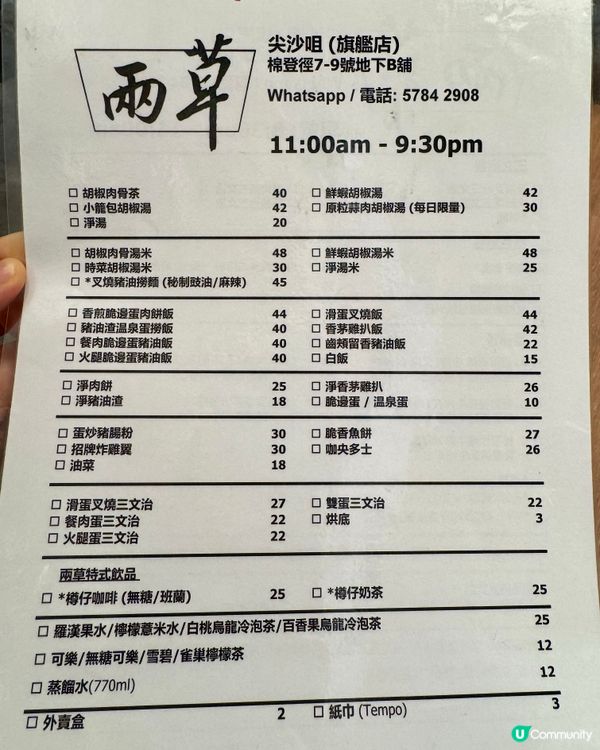 兩草
尖沙咀 (旗艦店)
棉登徑7-9號地下B舖
Whatsapp / 電話: 5784 2908
11:00am - 9:30pm
☐ 胡椒肉骨茶 40 ☐ 鮮蝦胡椒湯 42
☐ 小籠包胡椒湯 42 ☐ 原粒蒜肉胡椒湯 (每日限量) 30
☐ 淨湯 20
☐ 胡椒肉骨湯米 48 ☐ 鮮蝦胡椒湯米 48
☐ 時菜胡椒湯米 30 ☐ 淨湯米 25
☐ *叉燒豬油撈麵 (秘制豉油/麻辣) 45
☐ 香煎脆邊蛋肉餅飯 44 ☐ 滑蛋叉燒飯 44
☐ 豬油渣溫泉蛋撈飯 40 ☐ 香茅雞扒飯 42
☐ 餐肉脆邊蛋豬油飯 40 ☐ 齒頰留香豬油飯 22
☐ 火腿脆邊蛋豬油飯 40 ☐ 白飯 15
☐ 淨肉餅 25 ☐ 淨香茅雞扒 26
☐ 淨豬油渣 18 ☐ 脆邊蛋 / 溫泉蛋 10
☐ 蛋炒豬腸粉 30 ☐ 脆香魚餅 27
☐ 招牌炸雞翼 30 ☐ 咖央多士 26
☐ 油菜 18
☐ 滑蛋叉燒三文治 27 ☐ 雙蛋三文治 22
☐ 餐肉蛋三文治 22 ☐ 烘底 3
☐ 火腿蛋三文治 22
兩草特式飲品
☐ *樽仔咖啡 (無糖/班蘭) 25 ☐ *樽仔奶茶 25
☐ 羅漢果水/檸檬薏米水/白桃烏龍冷泡茶/百香果烏龍冷泡茶 25
☐ 可樂/無糖可樂/雪碧/雀巢檸檬茶 12
☐ 蒸餾水(770ml) 12
☐ 外賣盒 2 ☐ 紙巾 (Tempo) 3
U Community